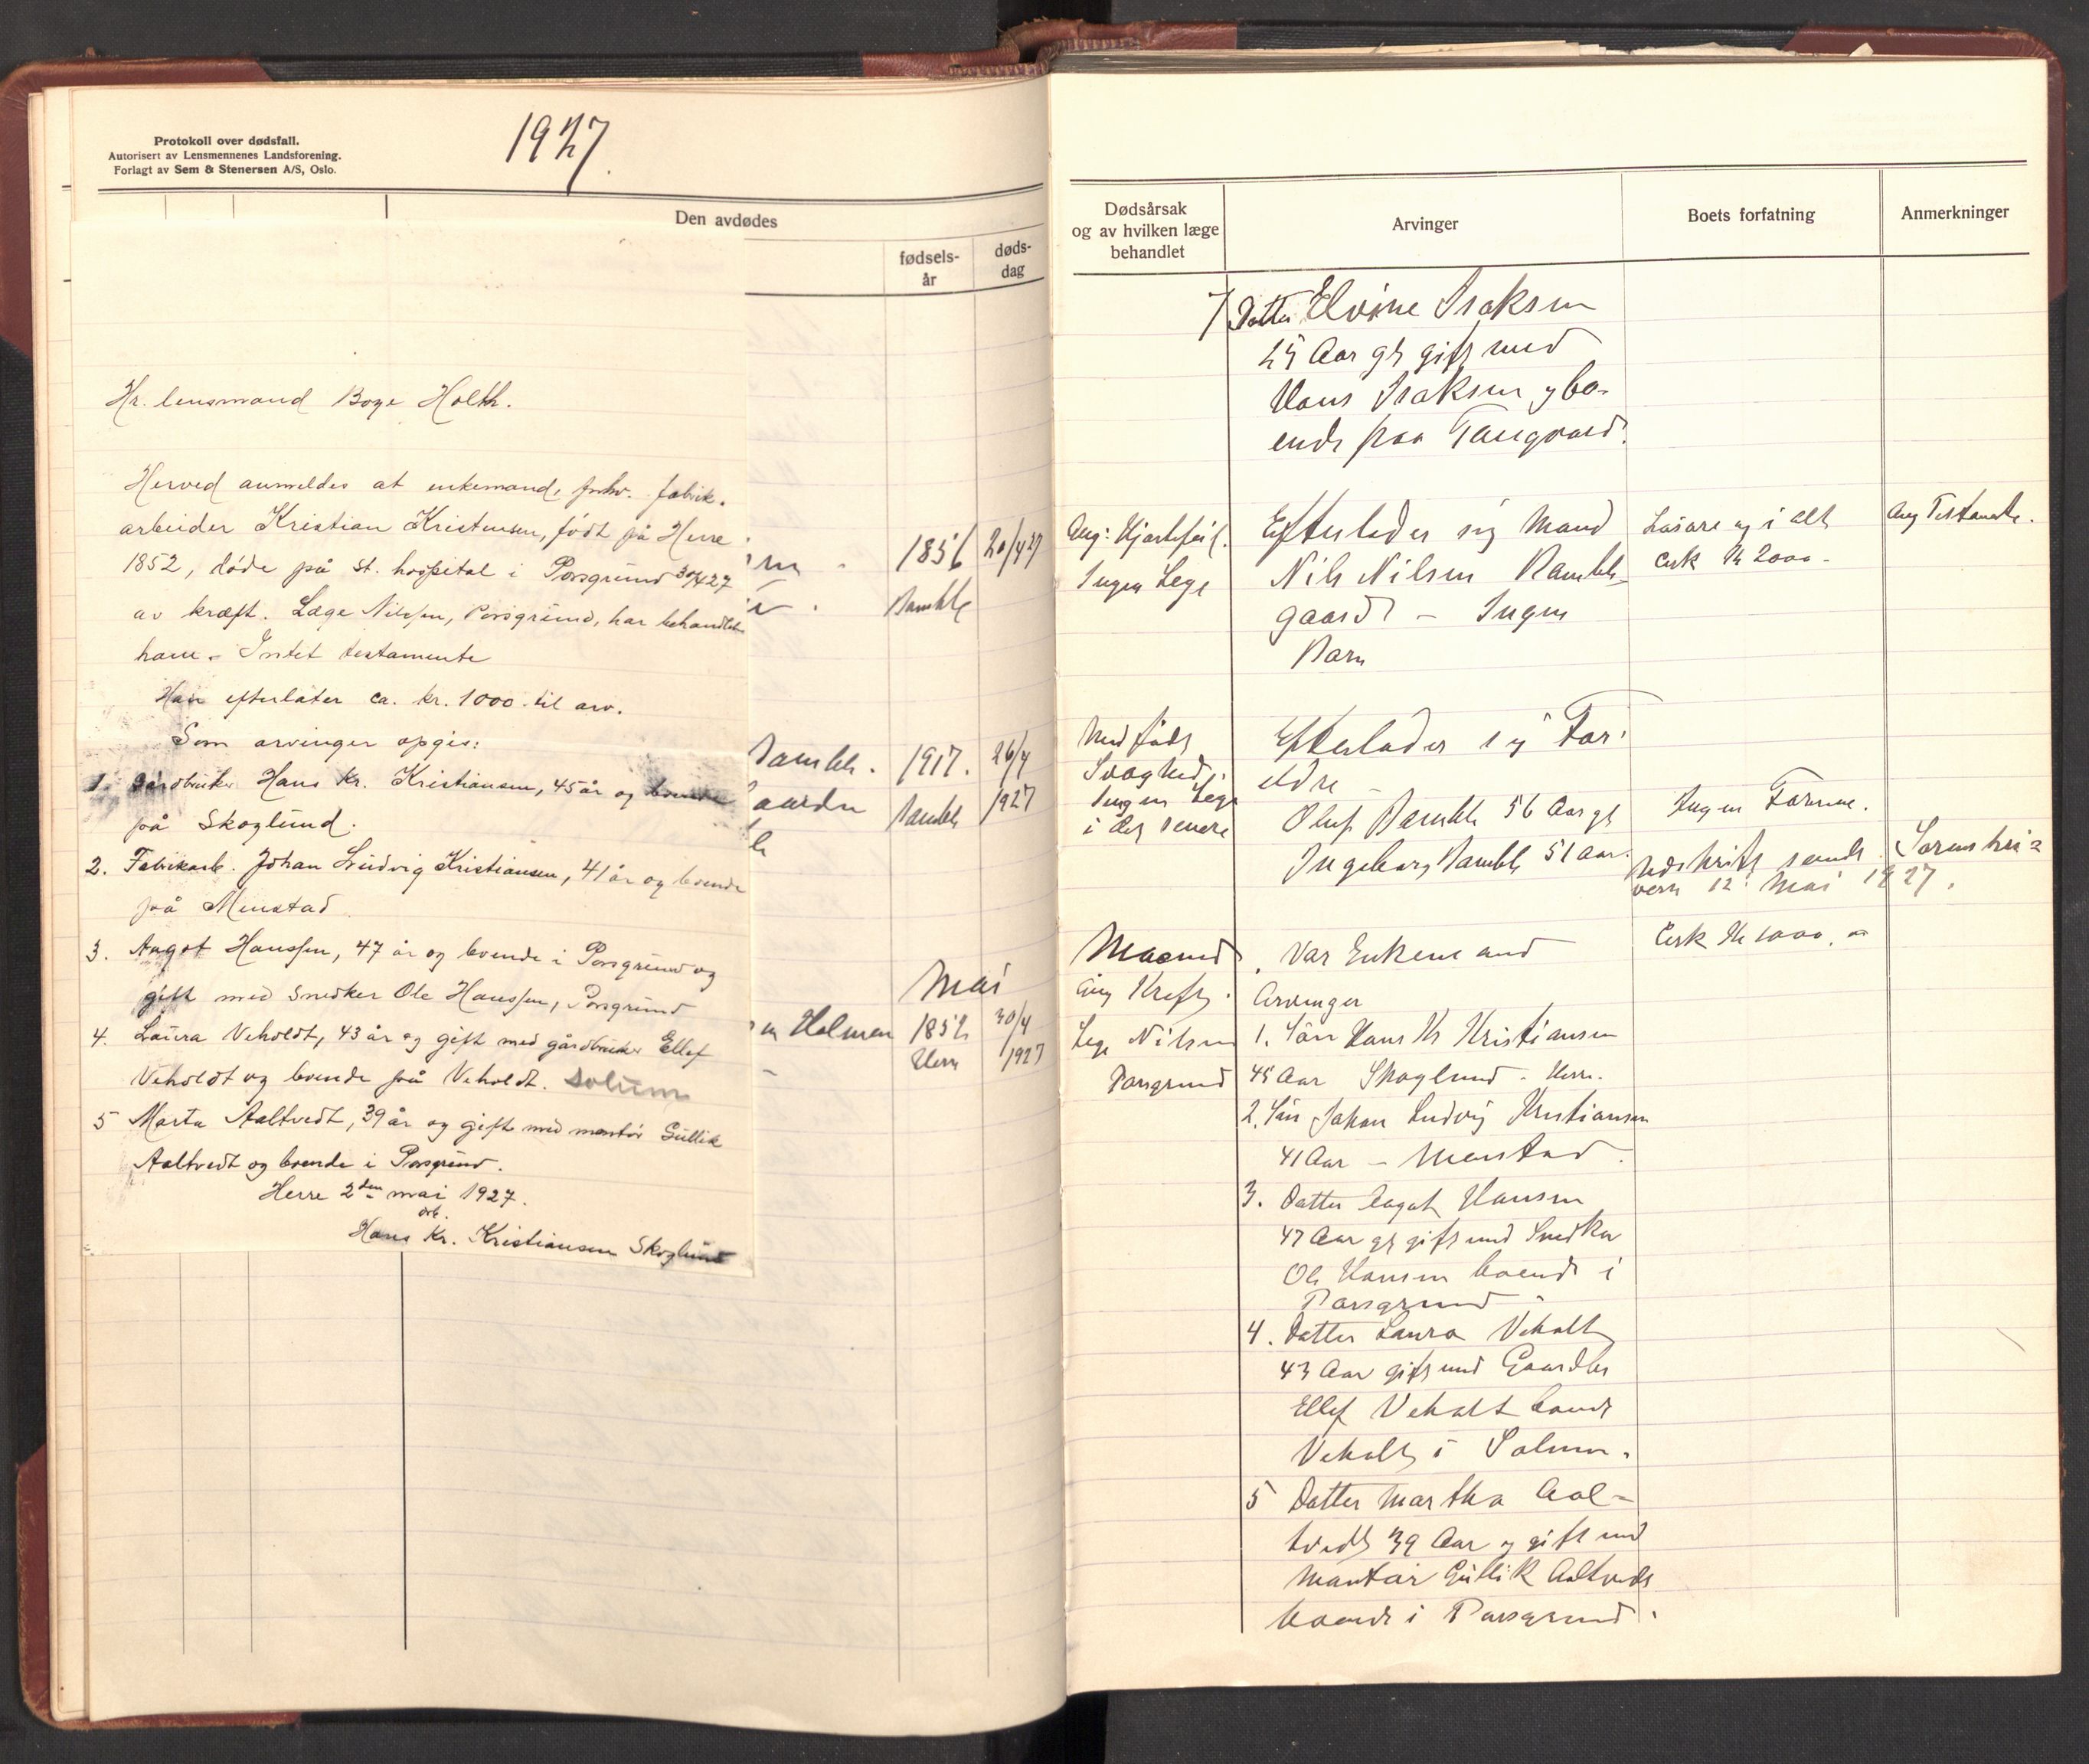 Protokoll over dødsfall.
Autorisert av Lensmennenes Landsforening.
Forlagt av Sem & Stenersen A/S, Oslo.
1927.
Den avdødes
fødsels-
år
døds-
dag
Hr. lensmand Boye Holth.
Herved anmeldes at enkemand, fhv. fabrik-
arbeider Kristian Kristensen, født på Herre
1852, døde på st. hospital i Porsgrund 30/4 27
av kræft. Læge Nilssen, Porsgrund, har behandlet
ham. Intet testamente
Han efterlater ca. kr. 1000 til arv.
Som arvinger opgis:
1. Gårdbruker Hans Kr. Kristiansen, 45 år og boende
på Skoglund.
2. Fabrikarb. Johan Ludvig Kristiansen, 41 år og boende
på Menstad
3. Aagot Hanssen, 47 år og boende i Porsgrund og
gift med snedker Ole Hanssen, Porsgrund
4. Laura Veholdt, 43 år og gift med gårdbruker Ellef
Veholdt og boende på Veholdt. Solum
5 Marta Aaltvedt, 39 år og gift med montør Gullik
Aaltvedt og boende i Porsgrund.
Herre 2den mai 1927.
arb.
Hans Kr. Kristiansen Skoglund
1856 20/4 27
Bamble
Bamble. 1917. 26/4
gaarden Bamble 1927
Mai
Holmen 1852 30/4
Herre 1927
Dødsårsak
og av hvilken læge
behandlet
Arvinger
Boets forfatning
Anmerkninger
7 Datter Elvine Isaksen
25 Aar gl gift med
Hans Isaksen og bo-
ende paa Tangvald.
Ang: Hjertefeil.
Ingen Lege
Efterlader sig Mand
Nils Nilsen Bamble-
gaard – Ingen
Barn
Løsøre og i alt
Cirk Kr 2000 -
Ang Testamente.
Medfødt
Svaghed
Ingen Lege
i det senere
Efterlader sig For-
eldre –
Oluf Bamble 56 Aar gl
Ingeborg Bamble 51 Aar.
Ingen Formue.
Udskrift sendt Sorenskri-
vern 12' Mai 1927.
Maamed
Ang Kreft.
Lege Nilsen
Porsgrund
Var Enkemand
Arvinger
Cirk Kr 1000. -
1. Søn Hans Kr Kristiansen
45 Aar Skoglund - Herre.
2. Søn Johan Ludvig Kristiansen
41 Aar – Menstad.
3. Datter Aagot Hansen
47 Aar gl gift med Snedker
Ole Hansen boende i
Porsgrund -
4. Datter Laura Veholt
43 Aar gift med Gaardbr
Ellef Veholt boende
Veholt i Solum.
5 Datter Martha Aal-
tvedt 39 Aar og gift med
Montør Gullik Aaltvedt
boende i Porsgrund.